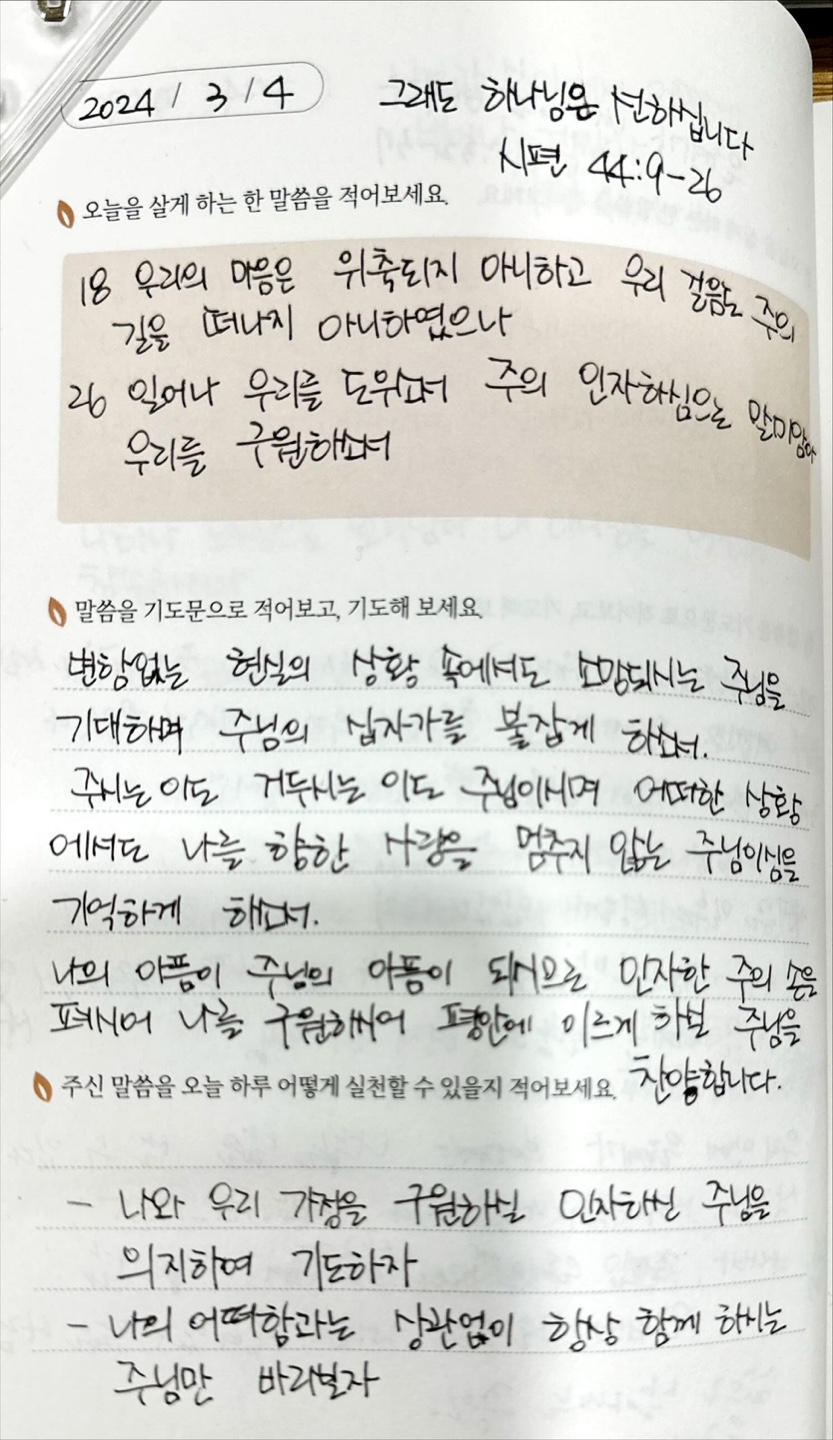 2024 / 3 / 4
그래도 하나님은 선하십니다
시편 44:9-26
오늘을 살게 하는 한 말씀을 적어보세요.
18 우리의 마음은 위축되지 아니하고 우리 걸음도 주의
길을 떠나지 아니하였으나
26 일어나 우리를 도우소서 주의 인자하심으로 말미암아
우리를 구원하소서
말씀을 기도문으로 적어보고, 기도해 보세요.
변함없는 현실의 상황 속에서도 소망되시는 주님을
기대하며 주님의 십자가를 붙잡게 하소서.
주시는 이도 거두시는 이도 주님이시며 어떠한 상황
에서도 나를 향한 사랑을 멈추지 않는 주님이심을
기억하게 하소서.
나의 아픔이 주님의 아픔이 되시므로 인자한 주의 손을
펴시어 나를 구원하시어 평안에 이르게 하실 주님을
찬양합니다.
주신 말씀을 오늘 하루 어떻게 실천할 수 있을지 적어보세요.
- 나와 우리 가정을 구원하실 인자하신 주님을
의지하여 기도하자
- 나의 어떠함과는 상관없이 항상 함께 하시는
주님만 바라보자